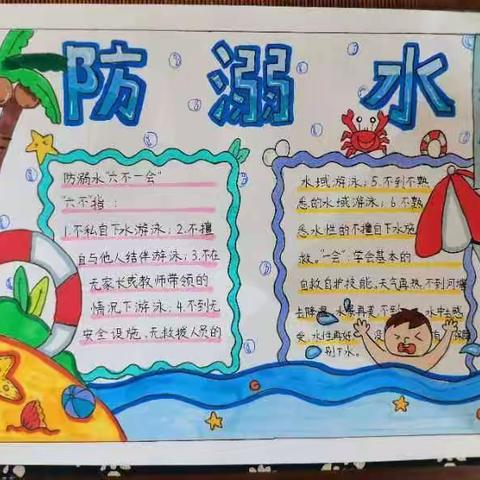 防溺水
防溺水"六不一会"
"六不"指：
1.不私自下水游泳；2.不擅
自与他人结伴游泳；3.不在
无家长或教师带领的
情况下游泳；4.不到无
安全设施、无救援人员的
水域游泳；5.不到不熟
悉的水域游泳；6.不熟
悉水性的不擅自下水施
救。"一会"：学会基本的
自救自护技能。天气再热，不到河塘
去降温，水果再爱，不到
水中去感
受，水性再好，没
别下水。